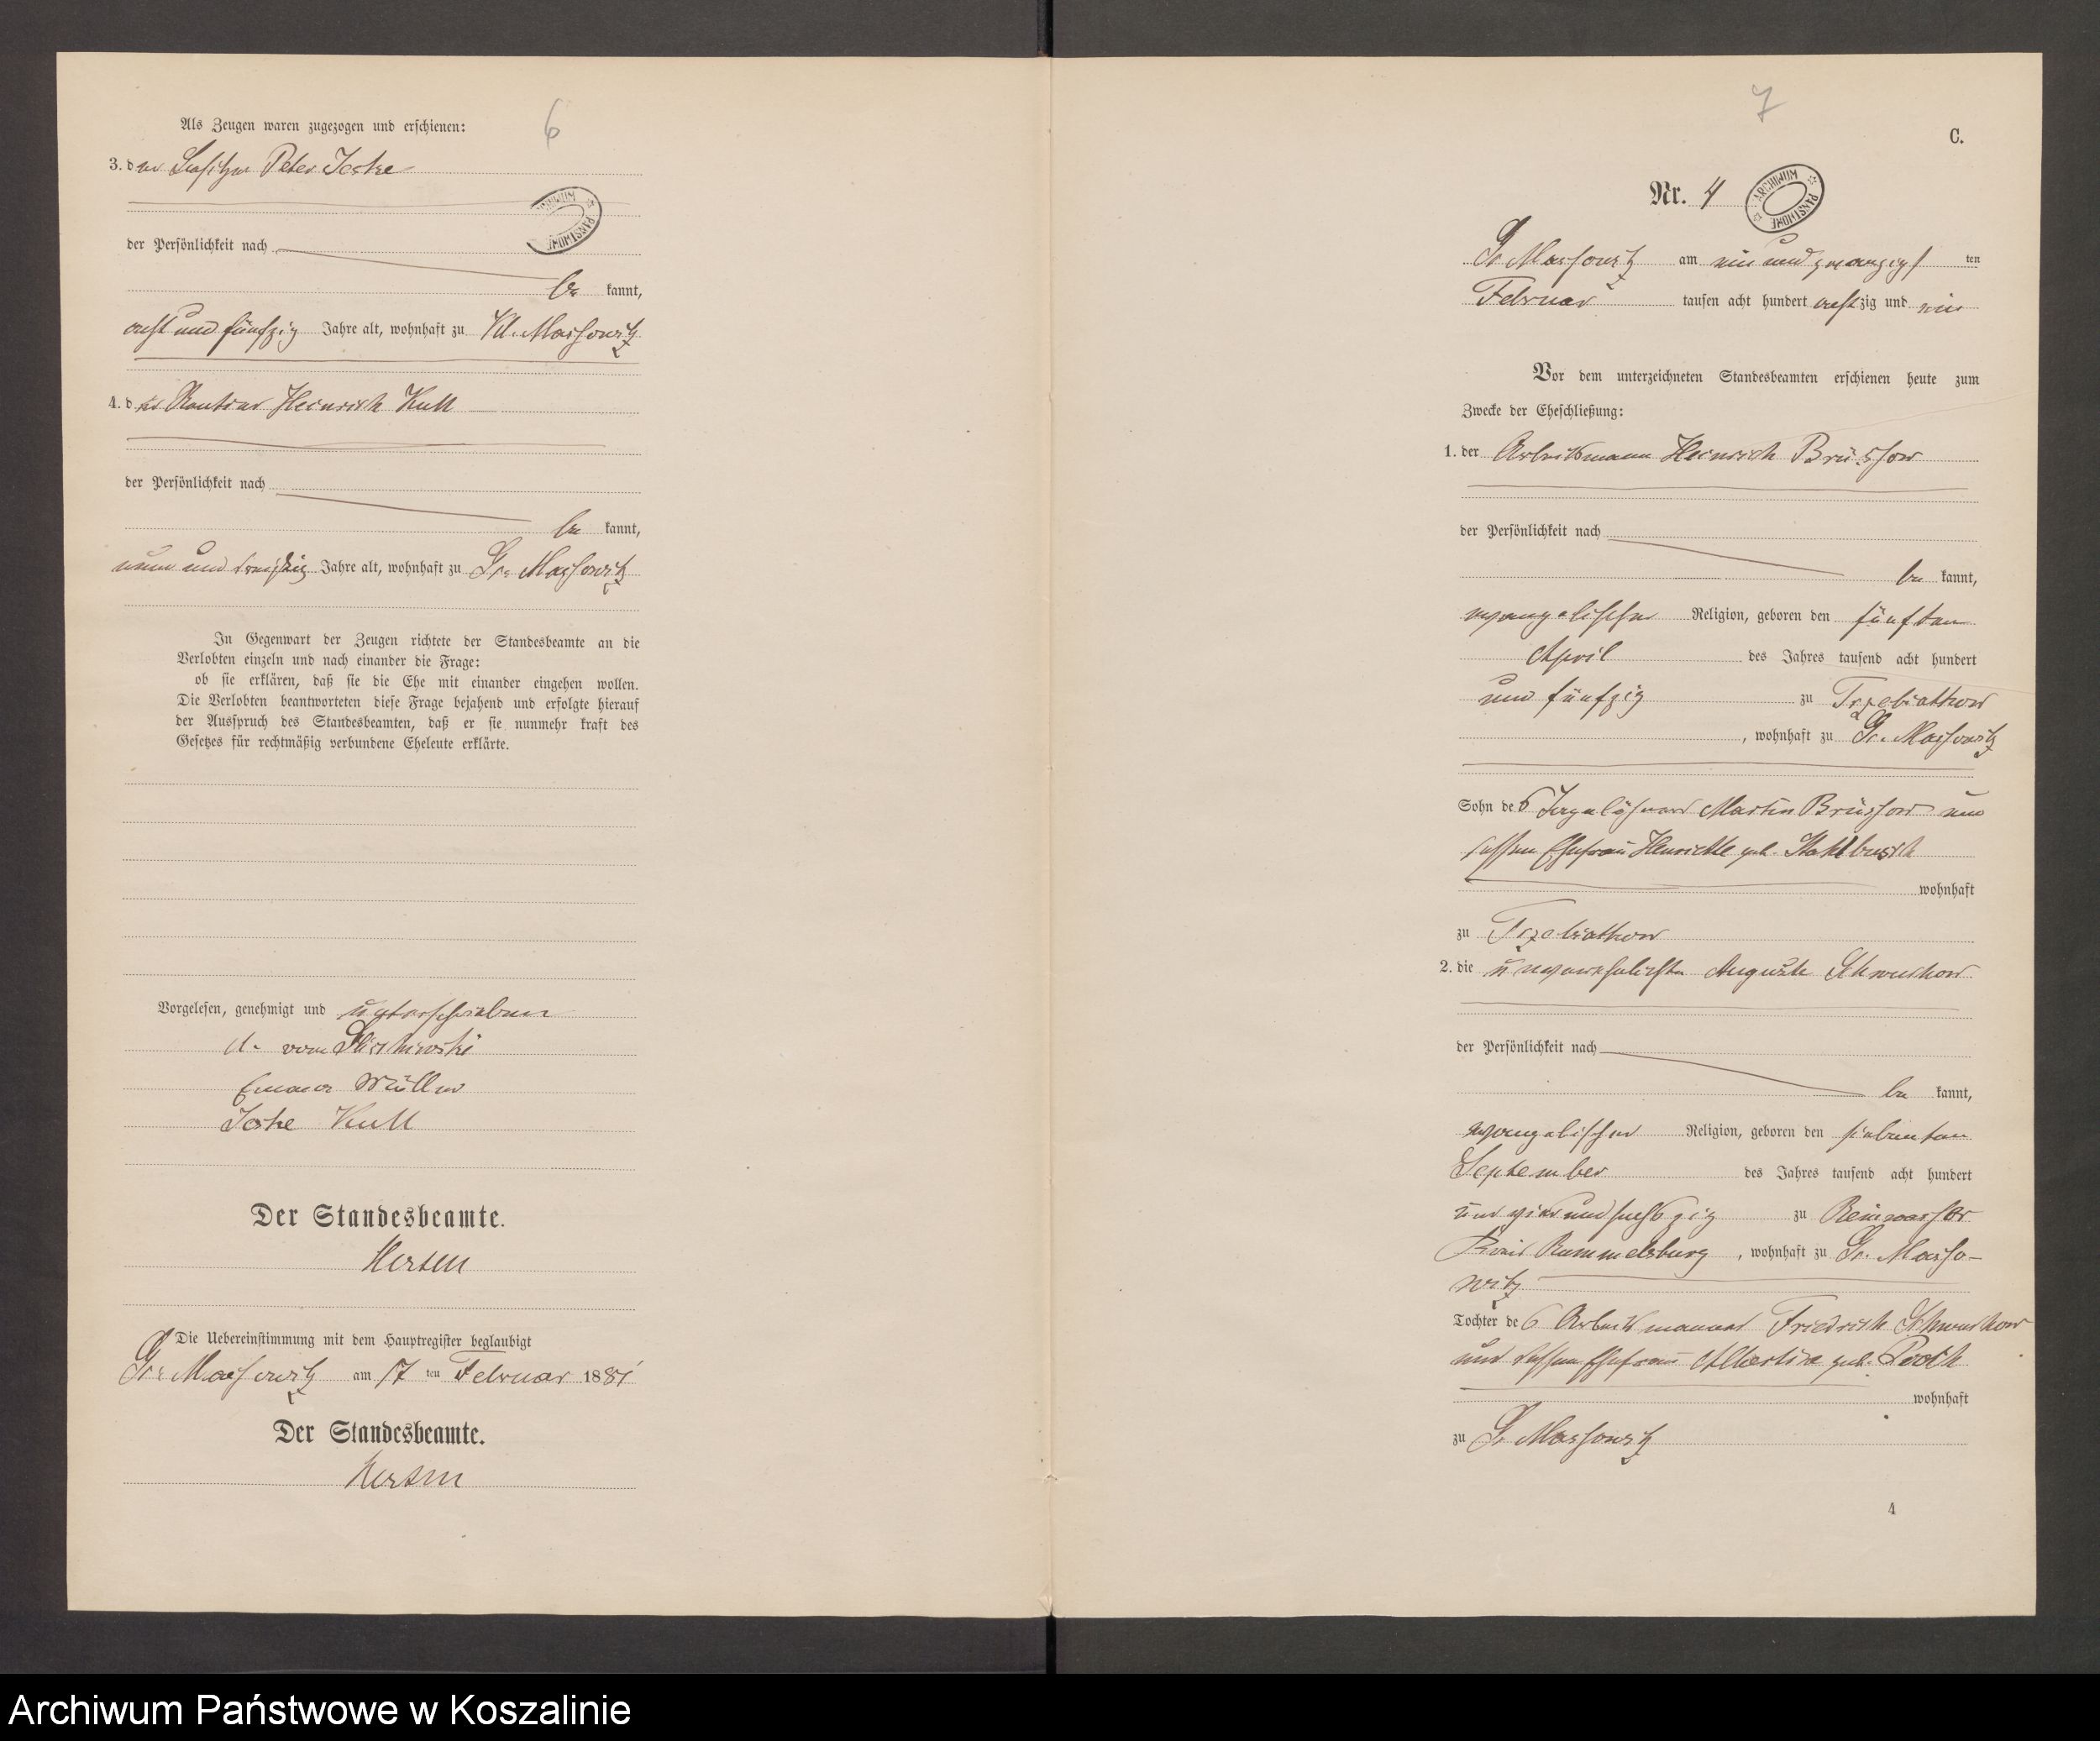 6
Als Zeugen waren zugezogen und erschienen:
3. der Besitzer Peter Jeske
der Persönlichkeit nach
be kannt,
acht und fünfzig Jahre alt, wohnhaft zu Kl. Massowitz
4. der Rentier Heinrich Kull
der Persönlichkeit nach
be kannt,
neun und dreißig Jahre alt, wohnhaft zu Gr. Massowitz
In Gegenwart der Zeugen richtete der Standesbeamte an die
Verlobten einzeln und nach einander die Frage:
ob sie erklären, daß sie die Ehe mit einander eingehen wollen.
Die Verlobten beantworteten diese Frage bejahend und erfolgte hierauf
der Ausspruch des Standesbeamten, daß er sie nunmehr kraft des
Gesetzes für rechtmäßig verbundene Eheleute erklärte.
Vorgelesen, genehmigt und unterschrieben
A. von
Emma Müller
Jeske Kull
Der Standesbeamte.
Die Uebereinstimmung mit dem Hauptregister beglaubigt
Gr. Massowitz am 17 ten Februar 1881
Der Standesbeamte.
7
C.
Nr. 4
ARCHIWUM PAŃSTWOWE
Gr Massowitz am ein und zwanzigs ten
Februar tausen acht hundert achtzig und ein
Vor dem unterzeichneten Standesbeamten erschienen heute zum
Zwecke der Eheschließung:
1. der Arbeitsmann Heinrich Brüssow
der Persönlichkeit nach
be kannt,
evangelischer Religion, geboren den fünften
April des Jahres tausend acht hundert
und fünfzig zu Trzebiatkow
, wohnhaft zu Gr. Massowitz
Sohn des Tagelöhners Martin Brüssow und
dessen Ehefrau Henriette geb. Stahlbusch
wohnhaft
zu Trzebiatkow
2. die unverehelichte Auguste Schwuchow
der Persönlichkeit nach
be kannt,
evangelischer Religion, geboren den siebenten
September des Jahres tausend acht hundert
und vier und sechszig zu Reinwasser
Kreis Rummelsburg , wohnhaft zu Gr. Masso-
witz
Tochter des Arbeitsmannes Friedrich Schwuchow
und dessen Ehefrau Albertine geb.
wohnhaft
zu Gr Massowitz
4
Archiwum Państwowe w Koszalinie